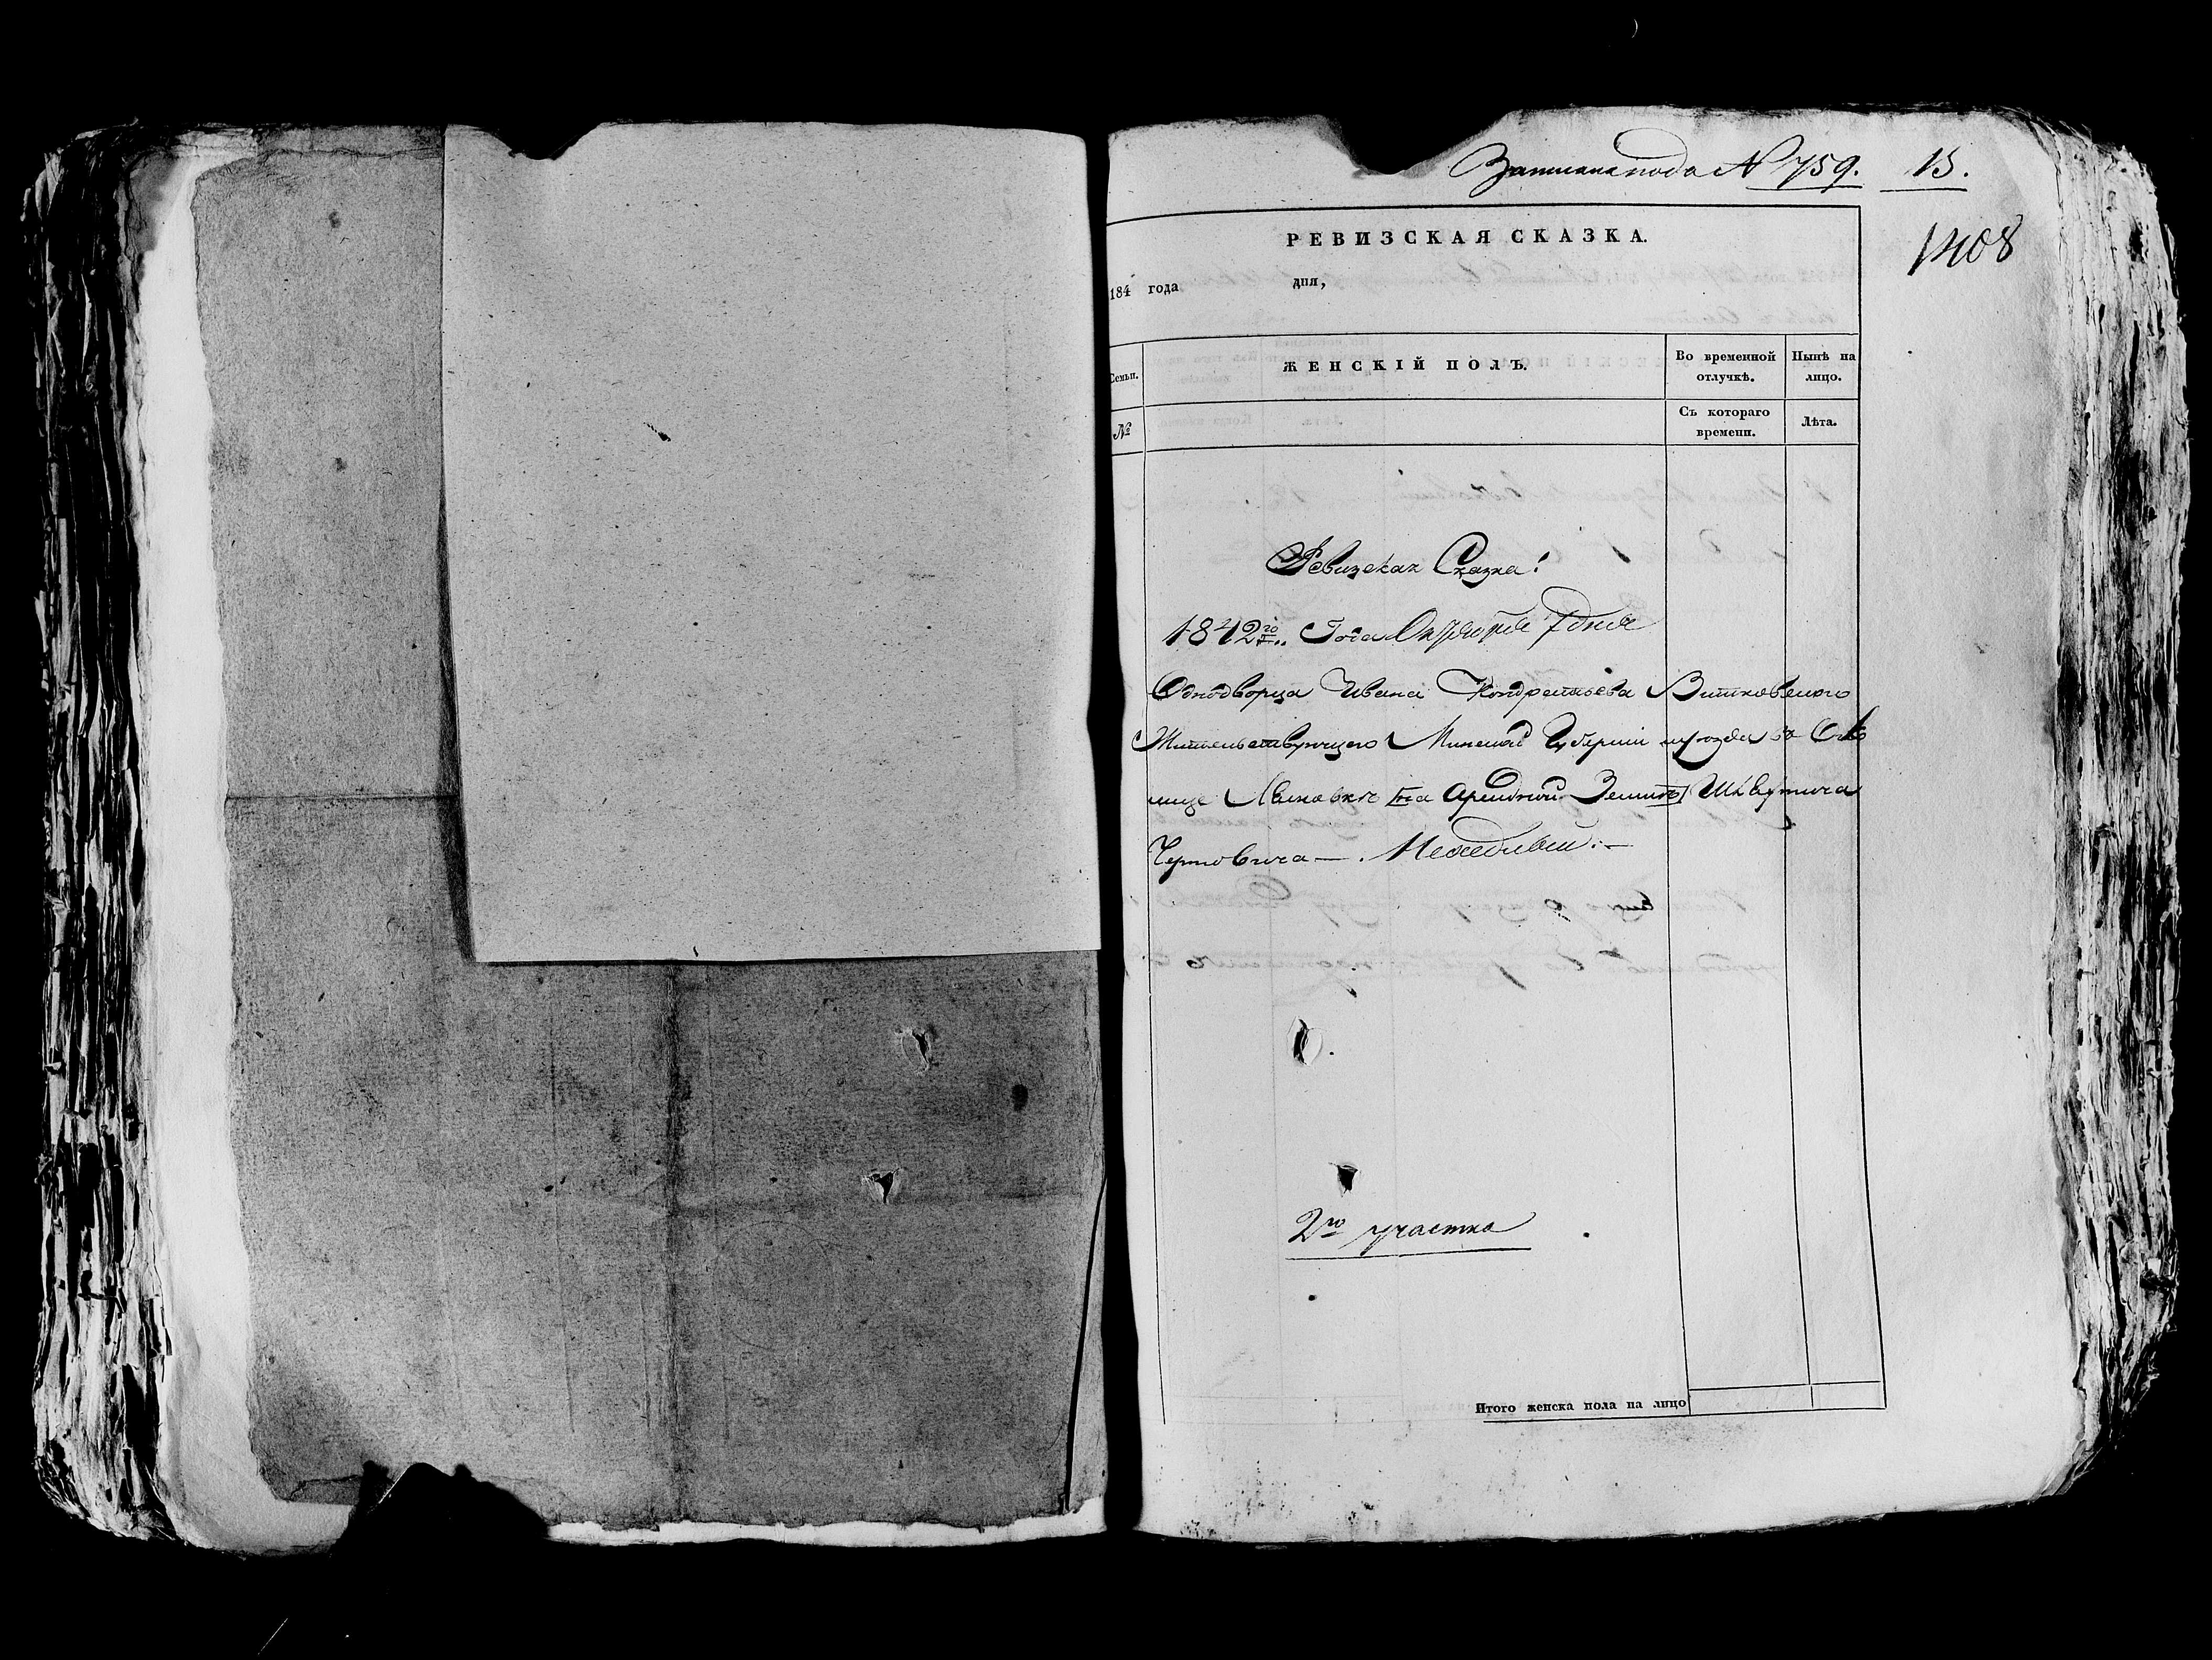 Записана подъ № 759. 15.
1408
РЕВИЗСКАЯ СКАЗКА.
184 года дня,
Семьи. ЖЕНСКІЙ ПОЛЪ. Во временной отлучкѣ. Нынѣ на лицо.
№ Съ котораго времени. Лѣта.
Ревизская Сказка!
1842го Года Октября 7 дня
Однодворца Ивана Кондратьева Витковского
Жительствующего Минской Губерніи уезда въ Око
лице на арендной Земли
2го участка
Итого женска пола на лицо